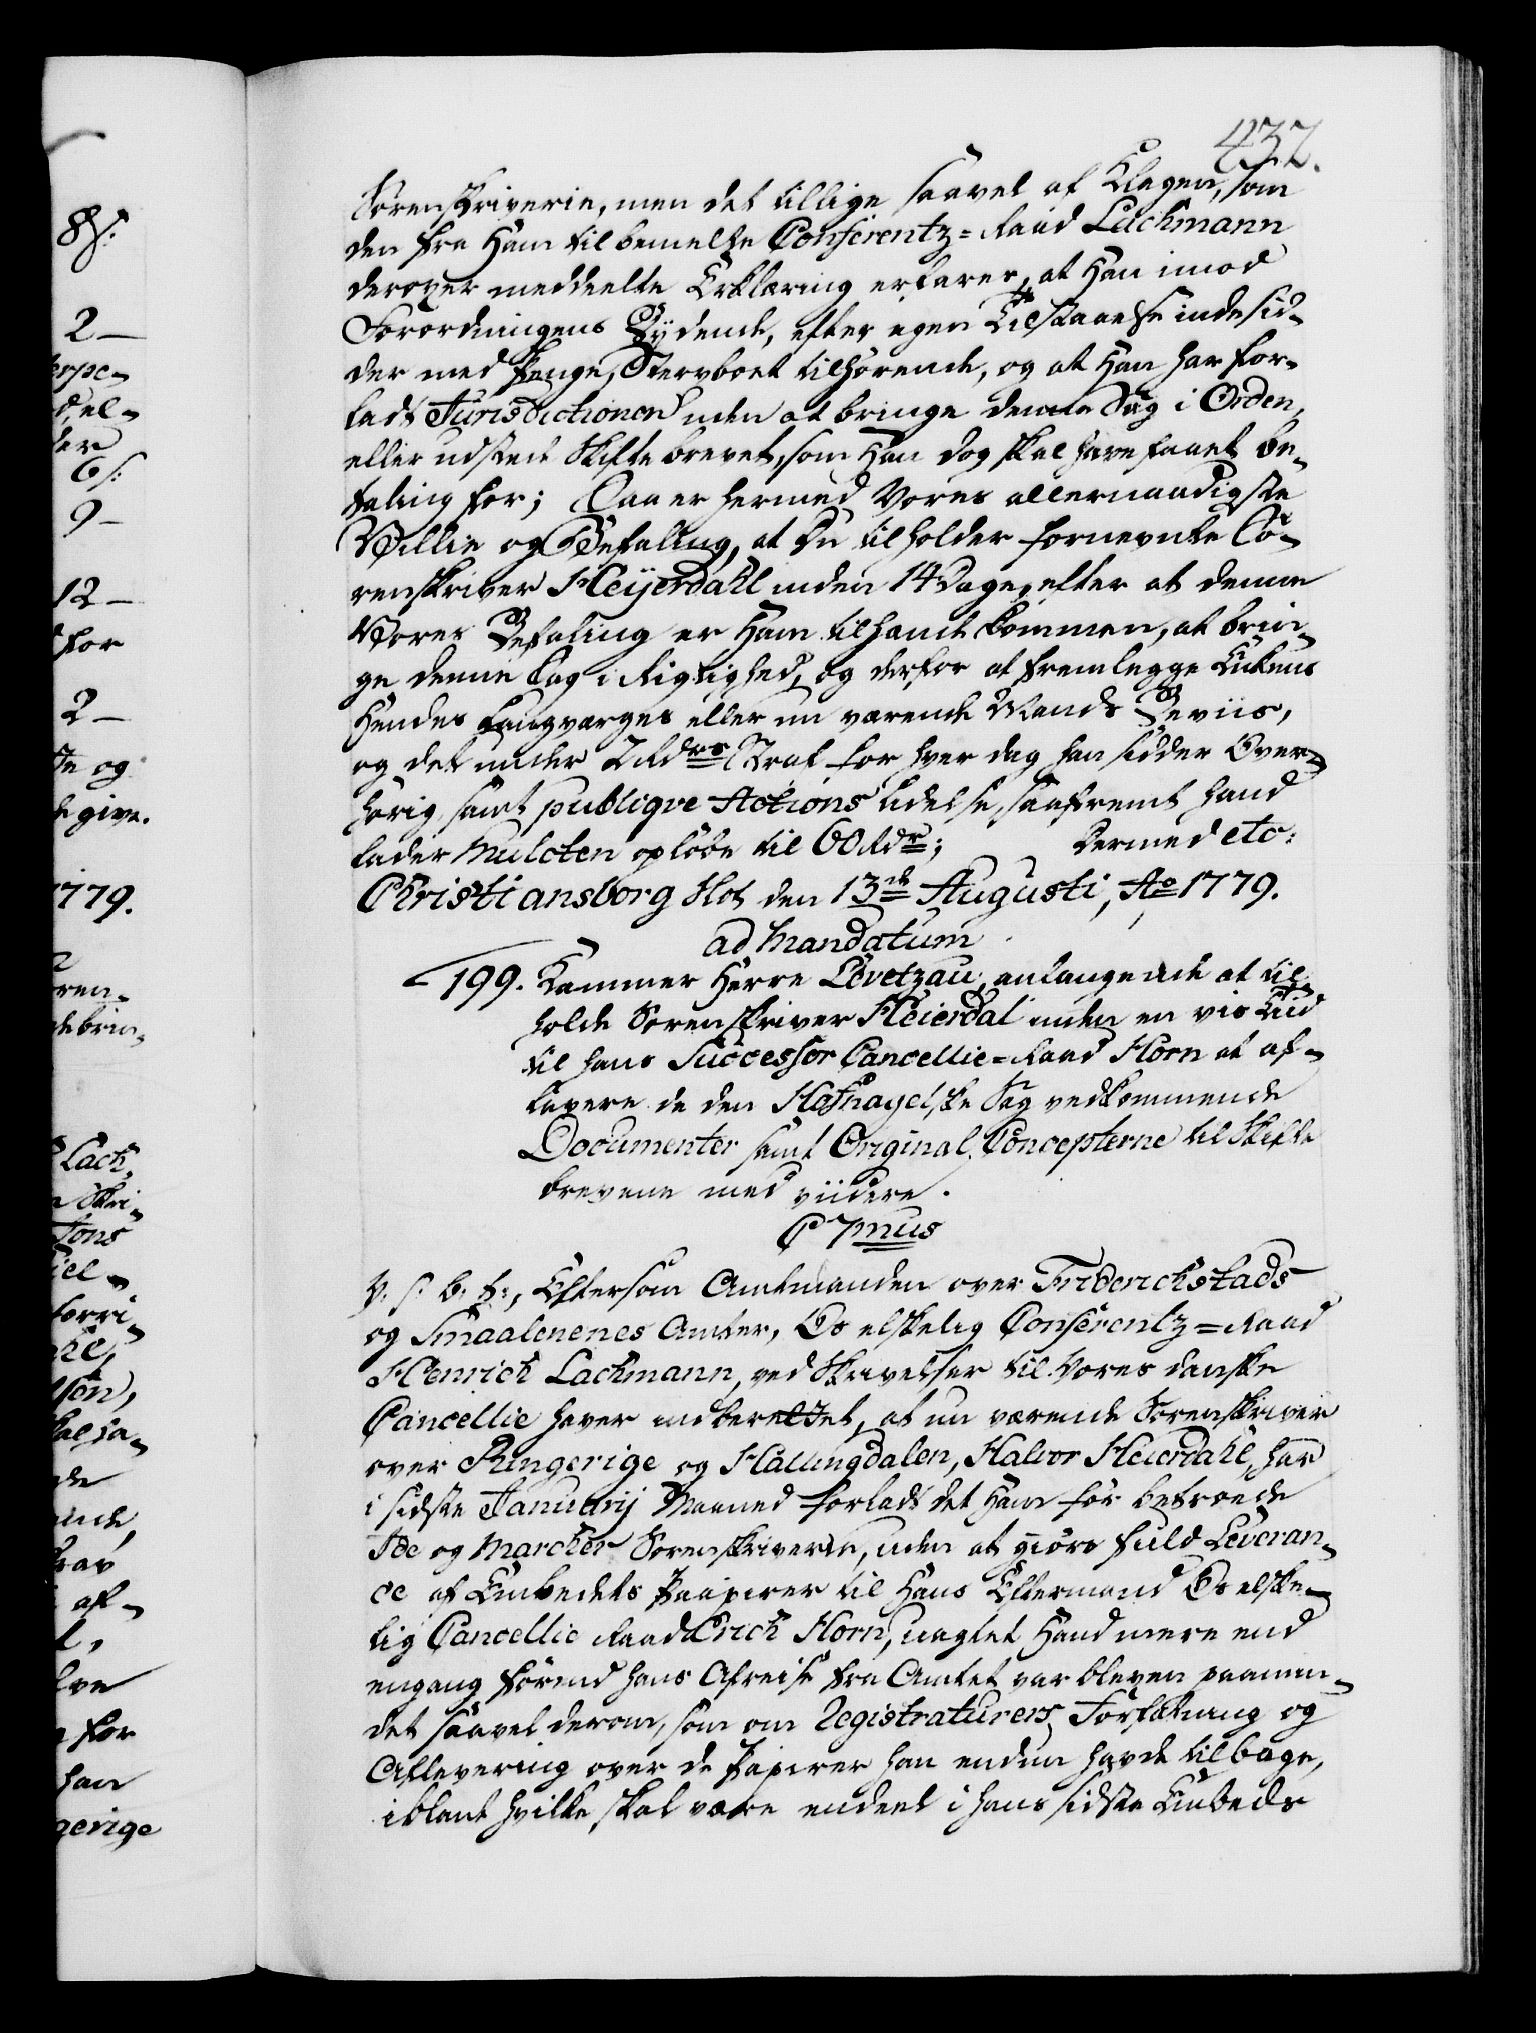 432.
Sorenskriverie, men det tillige saavel af Klagen, som
den fra Ham til bemelte Conferentz=Raad Lachmann
derover meddeelte Erklæring erfares, at Han imod
Forordningens Bydende, efter egen Tilstaaelse indesid-
der med Penge, Stervboet tilhörende, og at Han har for-
ladt Jurisdictionen uden at bringe denne Sag i Orden,
eller udsted Skiftebrevet, som Han dog skal have faaet be-
taling for; Saa er hermed Vores allernaadigste
Villie og Befaling, at Du tilholder fornevnte So-
renskriver Heijerdahl inden 14 Dage, efter at denne
Vores Befaling er Ham tilhande kommen, at brin-
ge denne Sag i Rigtighed, og derfor at fremlegge Enkens
Hendes Laugværges eller nu værende Mands Beviis,
og det under 2 Rdrs Straf for hver dag han sidder Over-
hörig, samt publiqve Actions Lidelse, saafremt hand
lader Mulcten oplöbe til 60 Rdr; Dermed etc:
Christiansborg Slot den 13de Augusti, Ao 1779.
ad Mandatum
199. Kammer Herre Levetzau, anlangende at til-
holde Sorenskriver Heierdal inden en vis Tiid
til hans Successor Cancellie=Raad Horn at af-
levere de den Hofnagelske Sag vedkommende
Documenter samt Original Concepterne til Skifte
brevene med viidere.
C 7mus
V. S. G. T:, Eftersom Amtmanden over Friderichstads
og Smaalenenes Amter, Os elskelig Conferentz=Raad
Henrich Lachmann, ved Skrivelser til Vores danske
Cancellie haver indberettet, at nu værende Sorenskriver
over Ringerige og Hallingdalen, Halvor Heierdahl, har
i sidste Januarij Maaned forladt det Ham för betroede
Ide og Marcker Sorenskriverie, uden at giöre fuld Leveran-
ce af Embedets Paapirer til Hans Eftermand Os elske-
lig Cancellie Raad Erich Horn, uagtet Hand mere end
engang förend hans Afreise fra Amtet var bleven paamin-
det saavel derom, som om Registraturers Forfatning og
Aflevering over de Papirer han endnu havde tilbage,
iblant hvilke skal være endeel i hans sidste Embeds